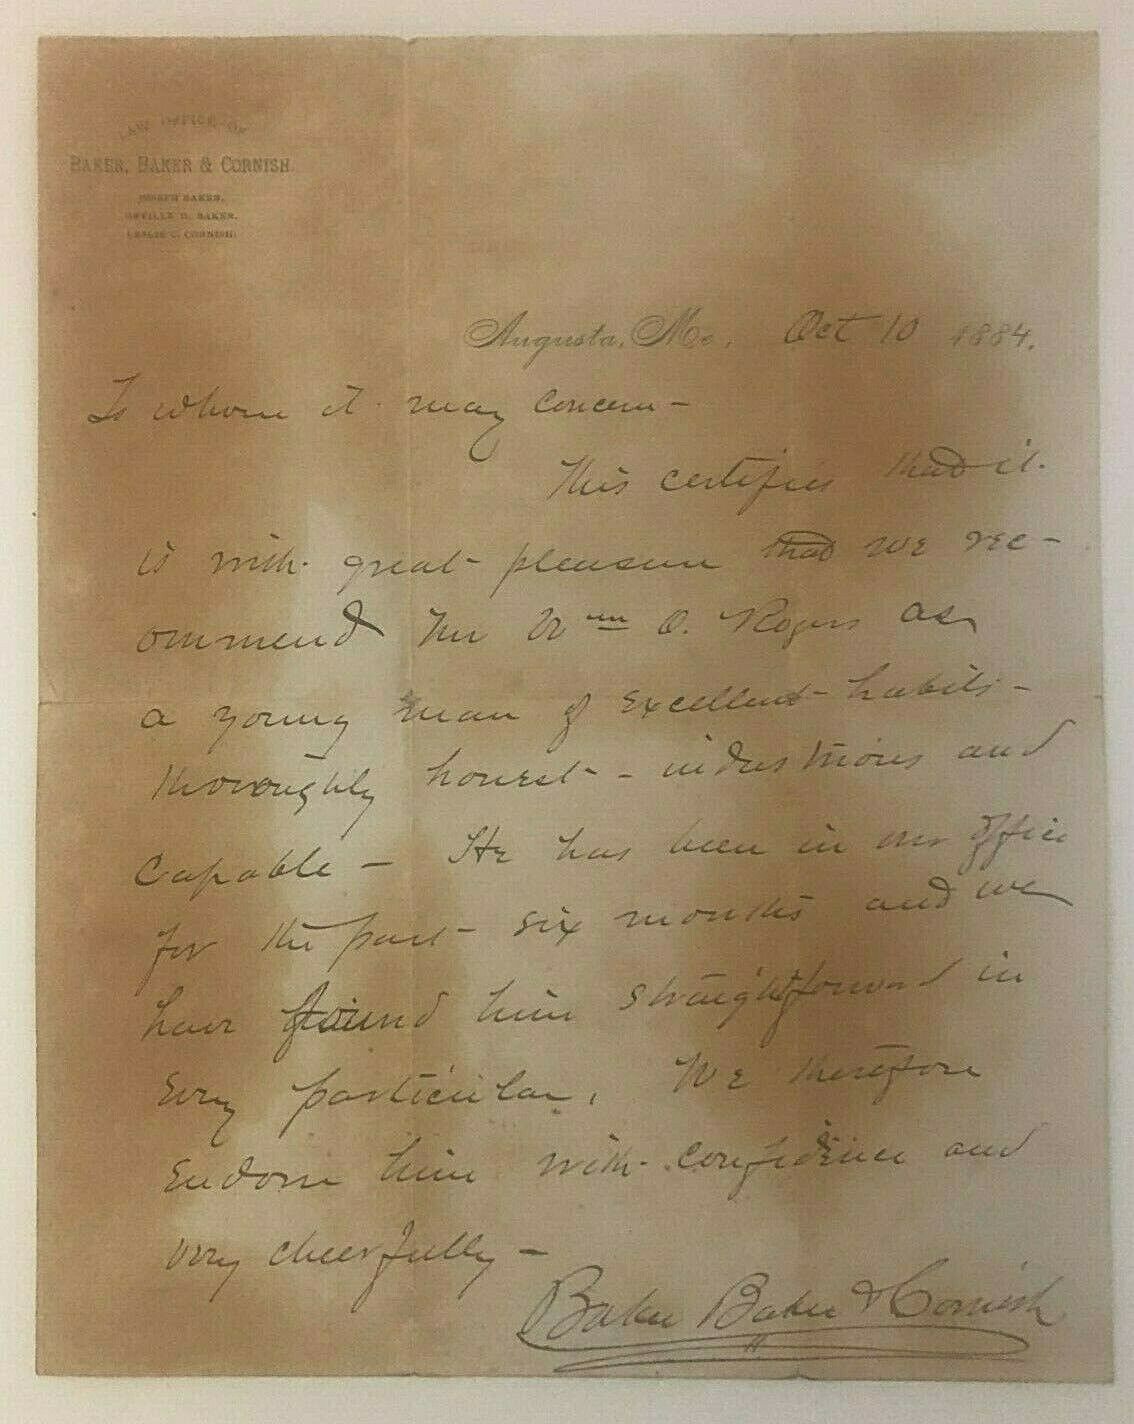 LAW OFFICE OF
BAKER, BAKER & CORNISH.
JOSEPH BAKER,
ORVILLE D. BAKER,
LESLIE C. CORNISH.
Augusta, Me., Oct 10 1884.
To whom it may concern -
This certifies that it
is with great pleasure that we rec-
ommend Mr Wm O. Rogers as
a young man of excellent habits -
thoroughly honest - industrious and
capable - He has been in our office
for the past six months and we
have found him straightforward in
every particular. We therefore
endorse him with confidence and
very cheerfully -
Baker Baker & Cornish